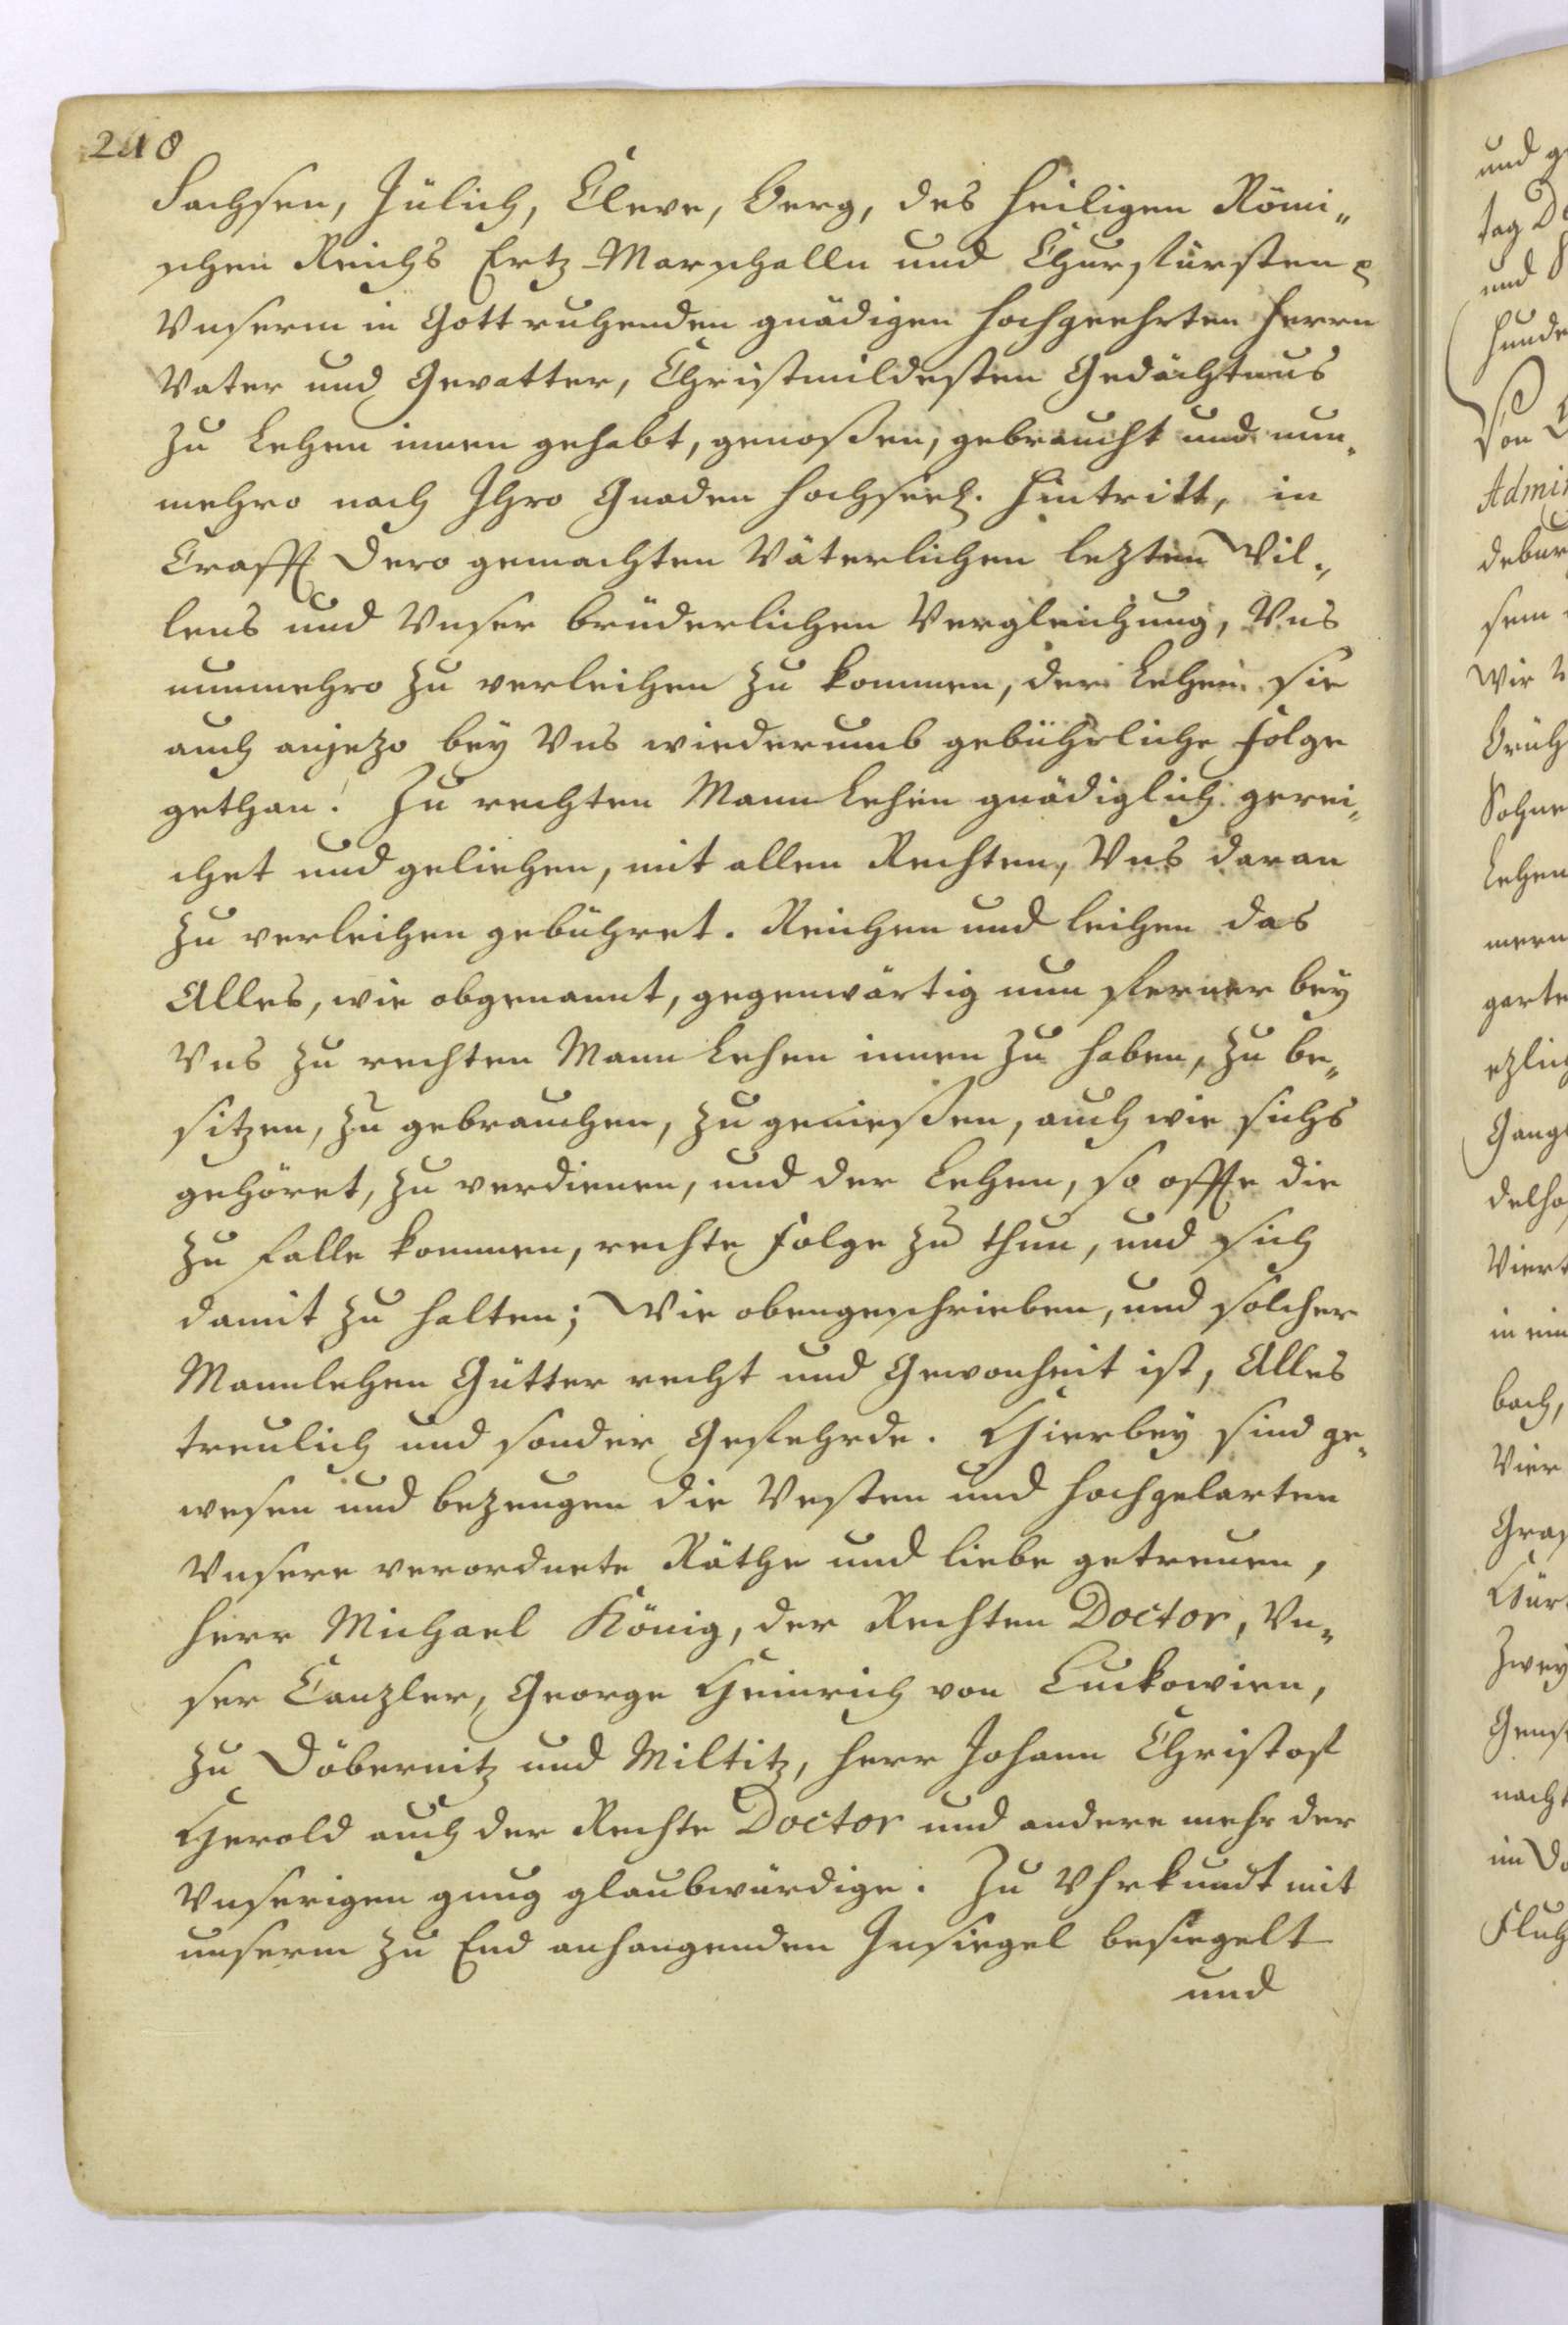 248
Sachsen, Jülich, Cleve, Berg, des heiligen Römi„
schen Reichs Ertz-Marschalln und Churfürsten
Vnserm in Gott ruhenden gnädigen hochgeehrten Herrn
Vater und Gevatter, Christmildesten Gedächtnus
zu Lehen innen gehabt, genoßen, gebraucht und nun„
mehro nach Ihro Gnaden hochseel. Hintritt, in
Crafft dero gemachten Väterlichen lezten Wil„
lens und Vnser brüderlichen Vergleichung, Vns
nunmehro zu verleihen zu kommen, der Lehen sie
auch anjezo bey Vns wiederumb gebührliche Folge
gethan! Zu rechten Mann Lehen gnädiglich gerei„
chet und geliehen, mit allen Rechten, Vns daran
zu verleihen gebühret. Reichen und leihen das
Alles, wie obgenannt, gegenwärtig nun ferner bey
Vns zu rechten Mann Lehen innen zu haben, zu be„
sitzen, zu gebrauchen, zu genießen, auch wie sichs
gehöret, zu verdienen, und der Lehen, so offte die
zu Falle kommen, rechte Folge zu thun, und sich
damit zu halten; Wie obengeschrieben, und solcher
Mannlehen Gütter recht und Gewonheit ist, Alles
treulich und sonder Gefehrde. Hierbey sind ge„
wesen und bezeugen die Vesten und hochgelarten
Vnsere verordnete Räthe und liebe getreuen,
Herr Michael König, der Rechten Doctor, Vn„
ser Canzler, George Heinrich von Luckowien,
zu Döbernitz und Miltitz, Herr Johann Christof
Herold auch der Rechte Doctor und andere mehr der
Vnserigen gnug glaubwürdige. Zu Vhrkundt mit
unserm zu End anhangenden Insiegel besiegelt
und
und
tag
und
hunde
Von
Admi
debur
sem
Wir
Brüh
Sohne
Lehen
mern
garte
ezlich
Gang
delho
Viert
in ein
bach,
Vier
Gra
zwey
nacht
im
Fluh